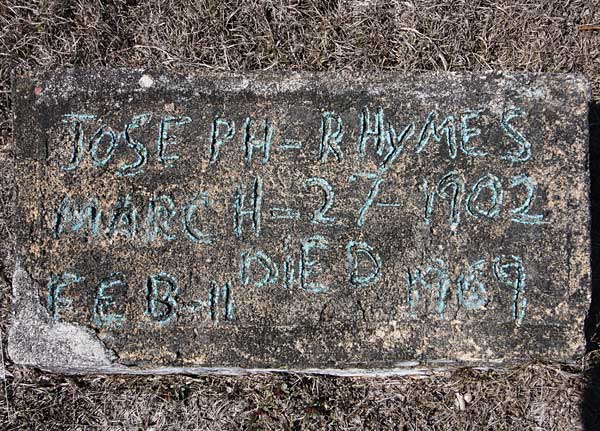 JOSEPH-RHYMES
MARCH-27-1902
DiED
FEB-11 1969